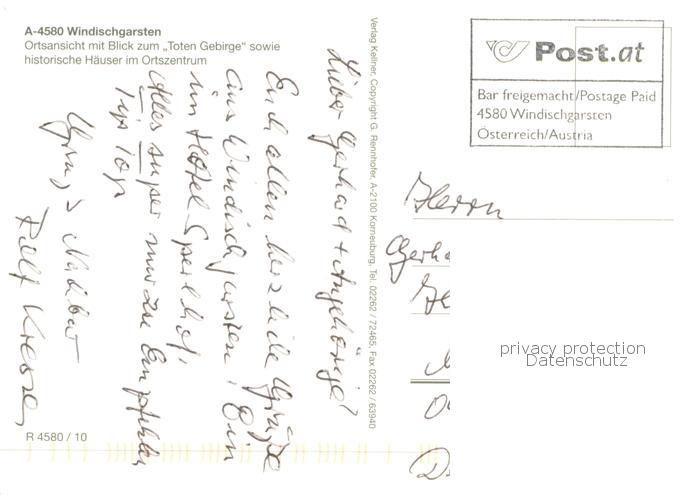 A-4580 Windischgarsten
Ortsansicht mit Blick zum „Toten Gebirge“ sowie
historische Häuser im Ortszentrum
Lieber Gerhard + Angehörige!
Euch allen herzliche Grüße
aus Windischgarsten. Bin
im Hotel Sperlhof,
Alles super nur zu Empfehlen
Tip Top
Gruß
Nachbar
Rolf
R 4580 / 10
Verlag Kellner, Copyright G. Rennhofer, A-2100 Korneuburg, Tel. 02262 / 72465, Fax 02262 / 63940
Post.at
Bar freigemacht/Postage Paid
4580 Windischgarsten
Österreich/Austria
Herrn
Gerha
privacy protection
Datenschutz